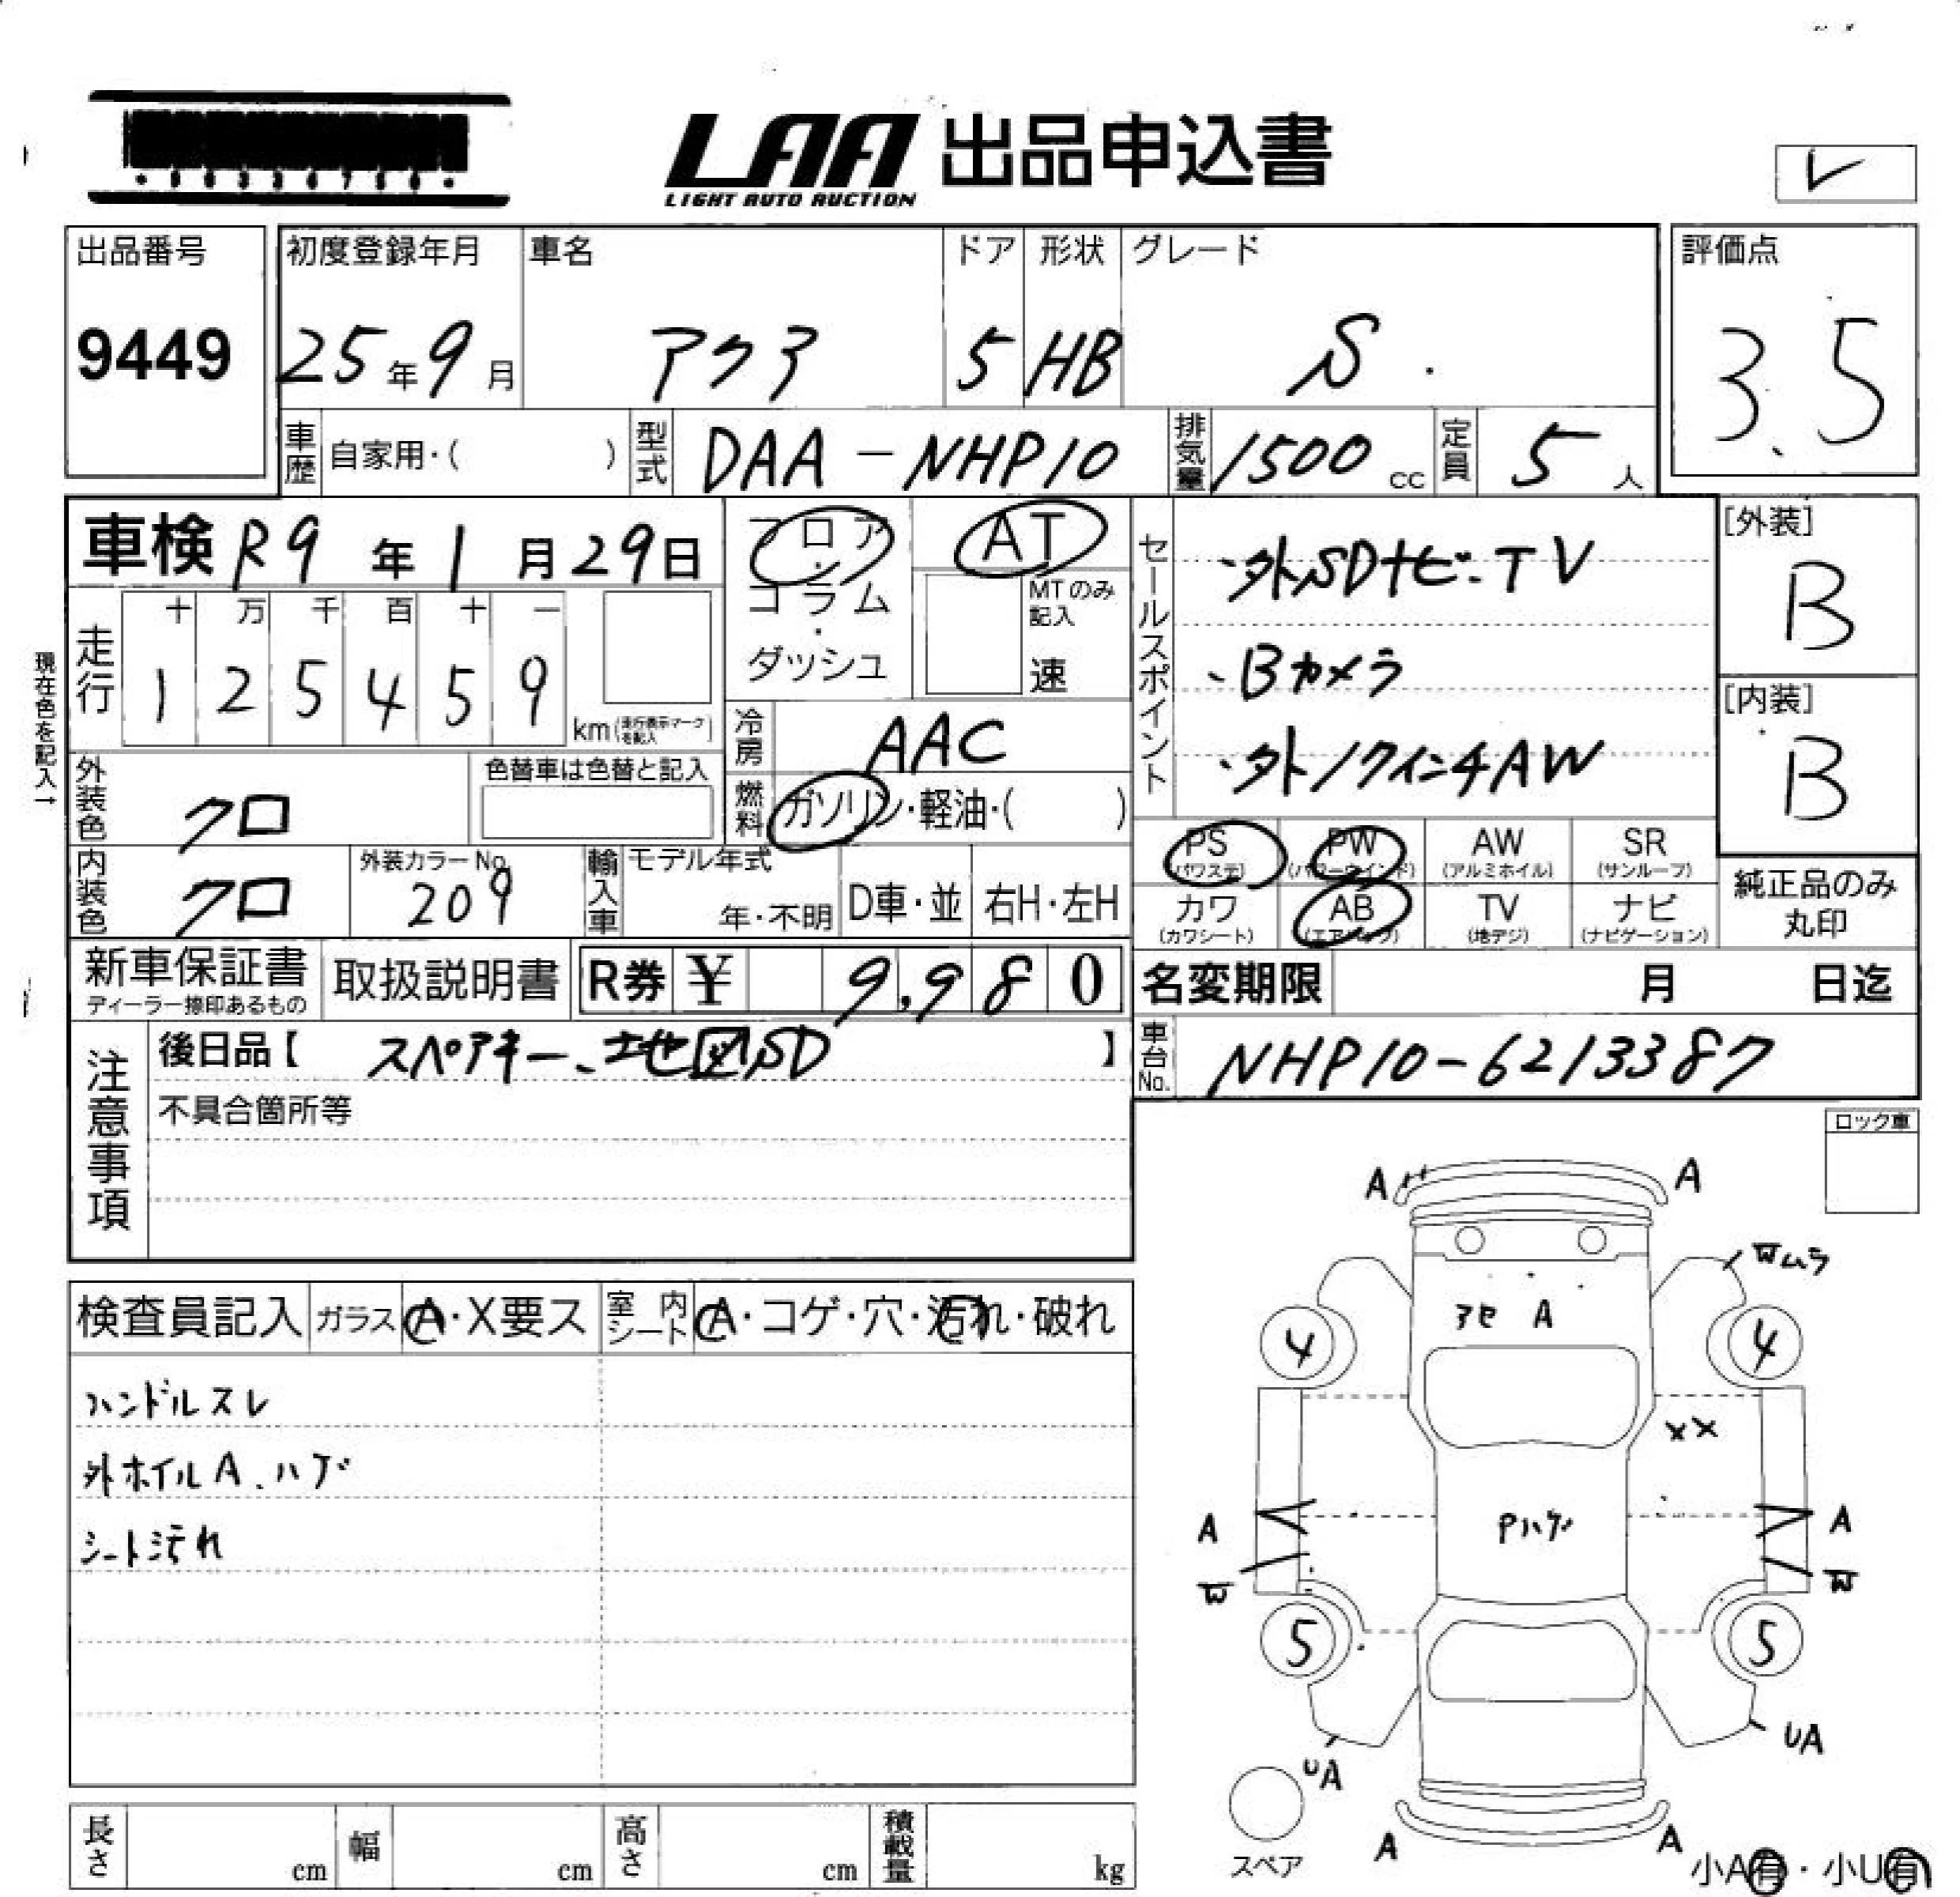 LAA 出品申込書
LIGHT AUTO AUCTION
レ
出品番号 初度登録年月 車名 ドア 形状 グレード 評価点
9449 25年9月 アクア 5 HB S. 3.5
車歴 自家用・( ) 型式 DAA-NHP10 排気量 1500cc 定員 5人
車検 R9年1月29日 フロア・コラム・ダッシュ AT
MTのみ記入 速
セールスポイント
・外SDナビ.TV
・Bカメラ
・外17インチAW
[外装]
B
[内装]
B
現在色を記入→
走行 十 万 千 百 十 一
1 2 5 4 5 9 km(走行表示マークを記入)
冷房 AAC
外装色 クロ 色替車は色替と記入
燃料 ガソリン・軽油・( )
内装色 クロ 外装カラーNo. 209 輸入車 モデル年式 年・不明 D車・並 右H・左H
PS (パワステ) PW (パワーウインド) AW (アルミホイル) SR (サンルーフ)
カワ (カワシート) AB (エアバッグ) TV (地デジ) ナビ (ナビゲーション)
純正品のみ
丸印
新車保証書 取扱説明書 R券 ¥ 9,980 名変期限 月 日迄
ディーラー捺印あるもの
注意事項
後日品【 スペアキー、地図SD 】
車台No. NHP10-6213387
不具合箇所等
ロック車
検査員記入 ガラス A・X要ス 室内シート A・コゲ・穴・汚れ・破れ
ハンドルスレ
外ホイルA.ハゲ
シート汚れ
A A
Wムラ
アセ A
4 4
XX
A Pハゲ A
W W
5 5
UA UA
スペア A A 小A有・小U有
長さ cm 幅 cm 高さ cm 積載量 kg